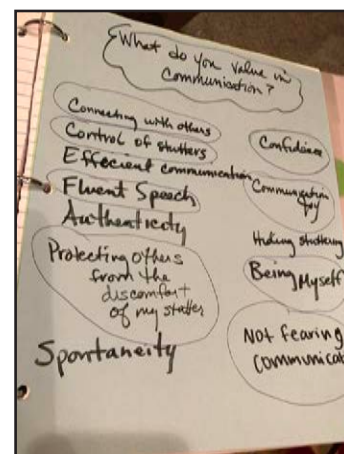 What do you value in
Communication?
Connecting with others
Control of stutters
Effecient communication
Fluent Speech
Authenticity
Protecting others
from the
discomfort
of my stutter
Spontaneity
Confidence
Communication
Joy
Hiding stuttering
Being Myself
Not fearing
communicat